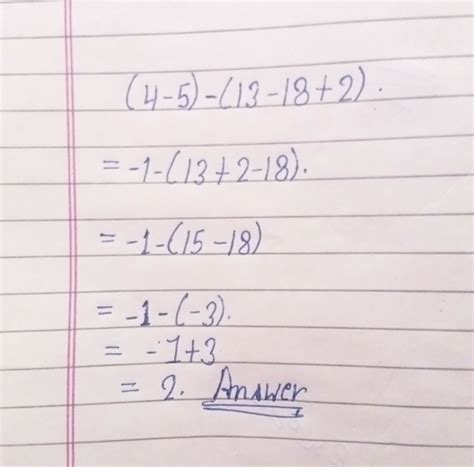 (4-5)-(13-18+2).
=-1-(13+2-18).
=-1-(15-18)
=-1-(-3).
= -1+3
= 2. Answer